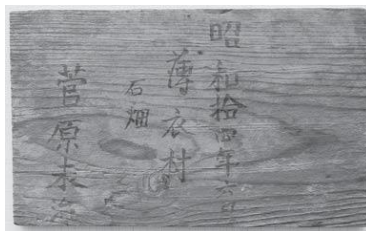 昭和拾四年六月
薄衣村
石畑
菅原